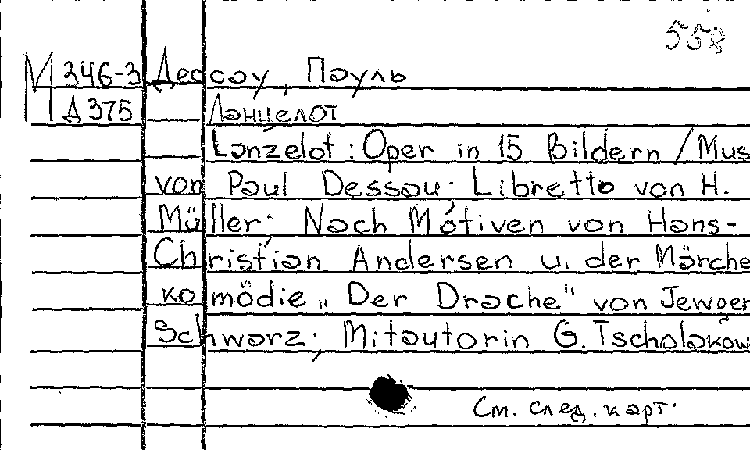 558
М 346-3 Дессау, Пауль
Д 375 Ланцелот
Lanzelot : Oper in 15 Bildern / Mus
von Paul Dessau. Libretto von H.
Müller; Nach Motiven von Hans-
Christian Andersen u. der Märche
komödie „Der Drache" von Jewger
Schwarz; Mitautorin G. Tscholakow
См. след. карт.